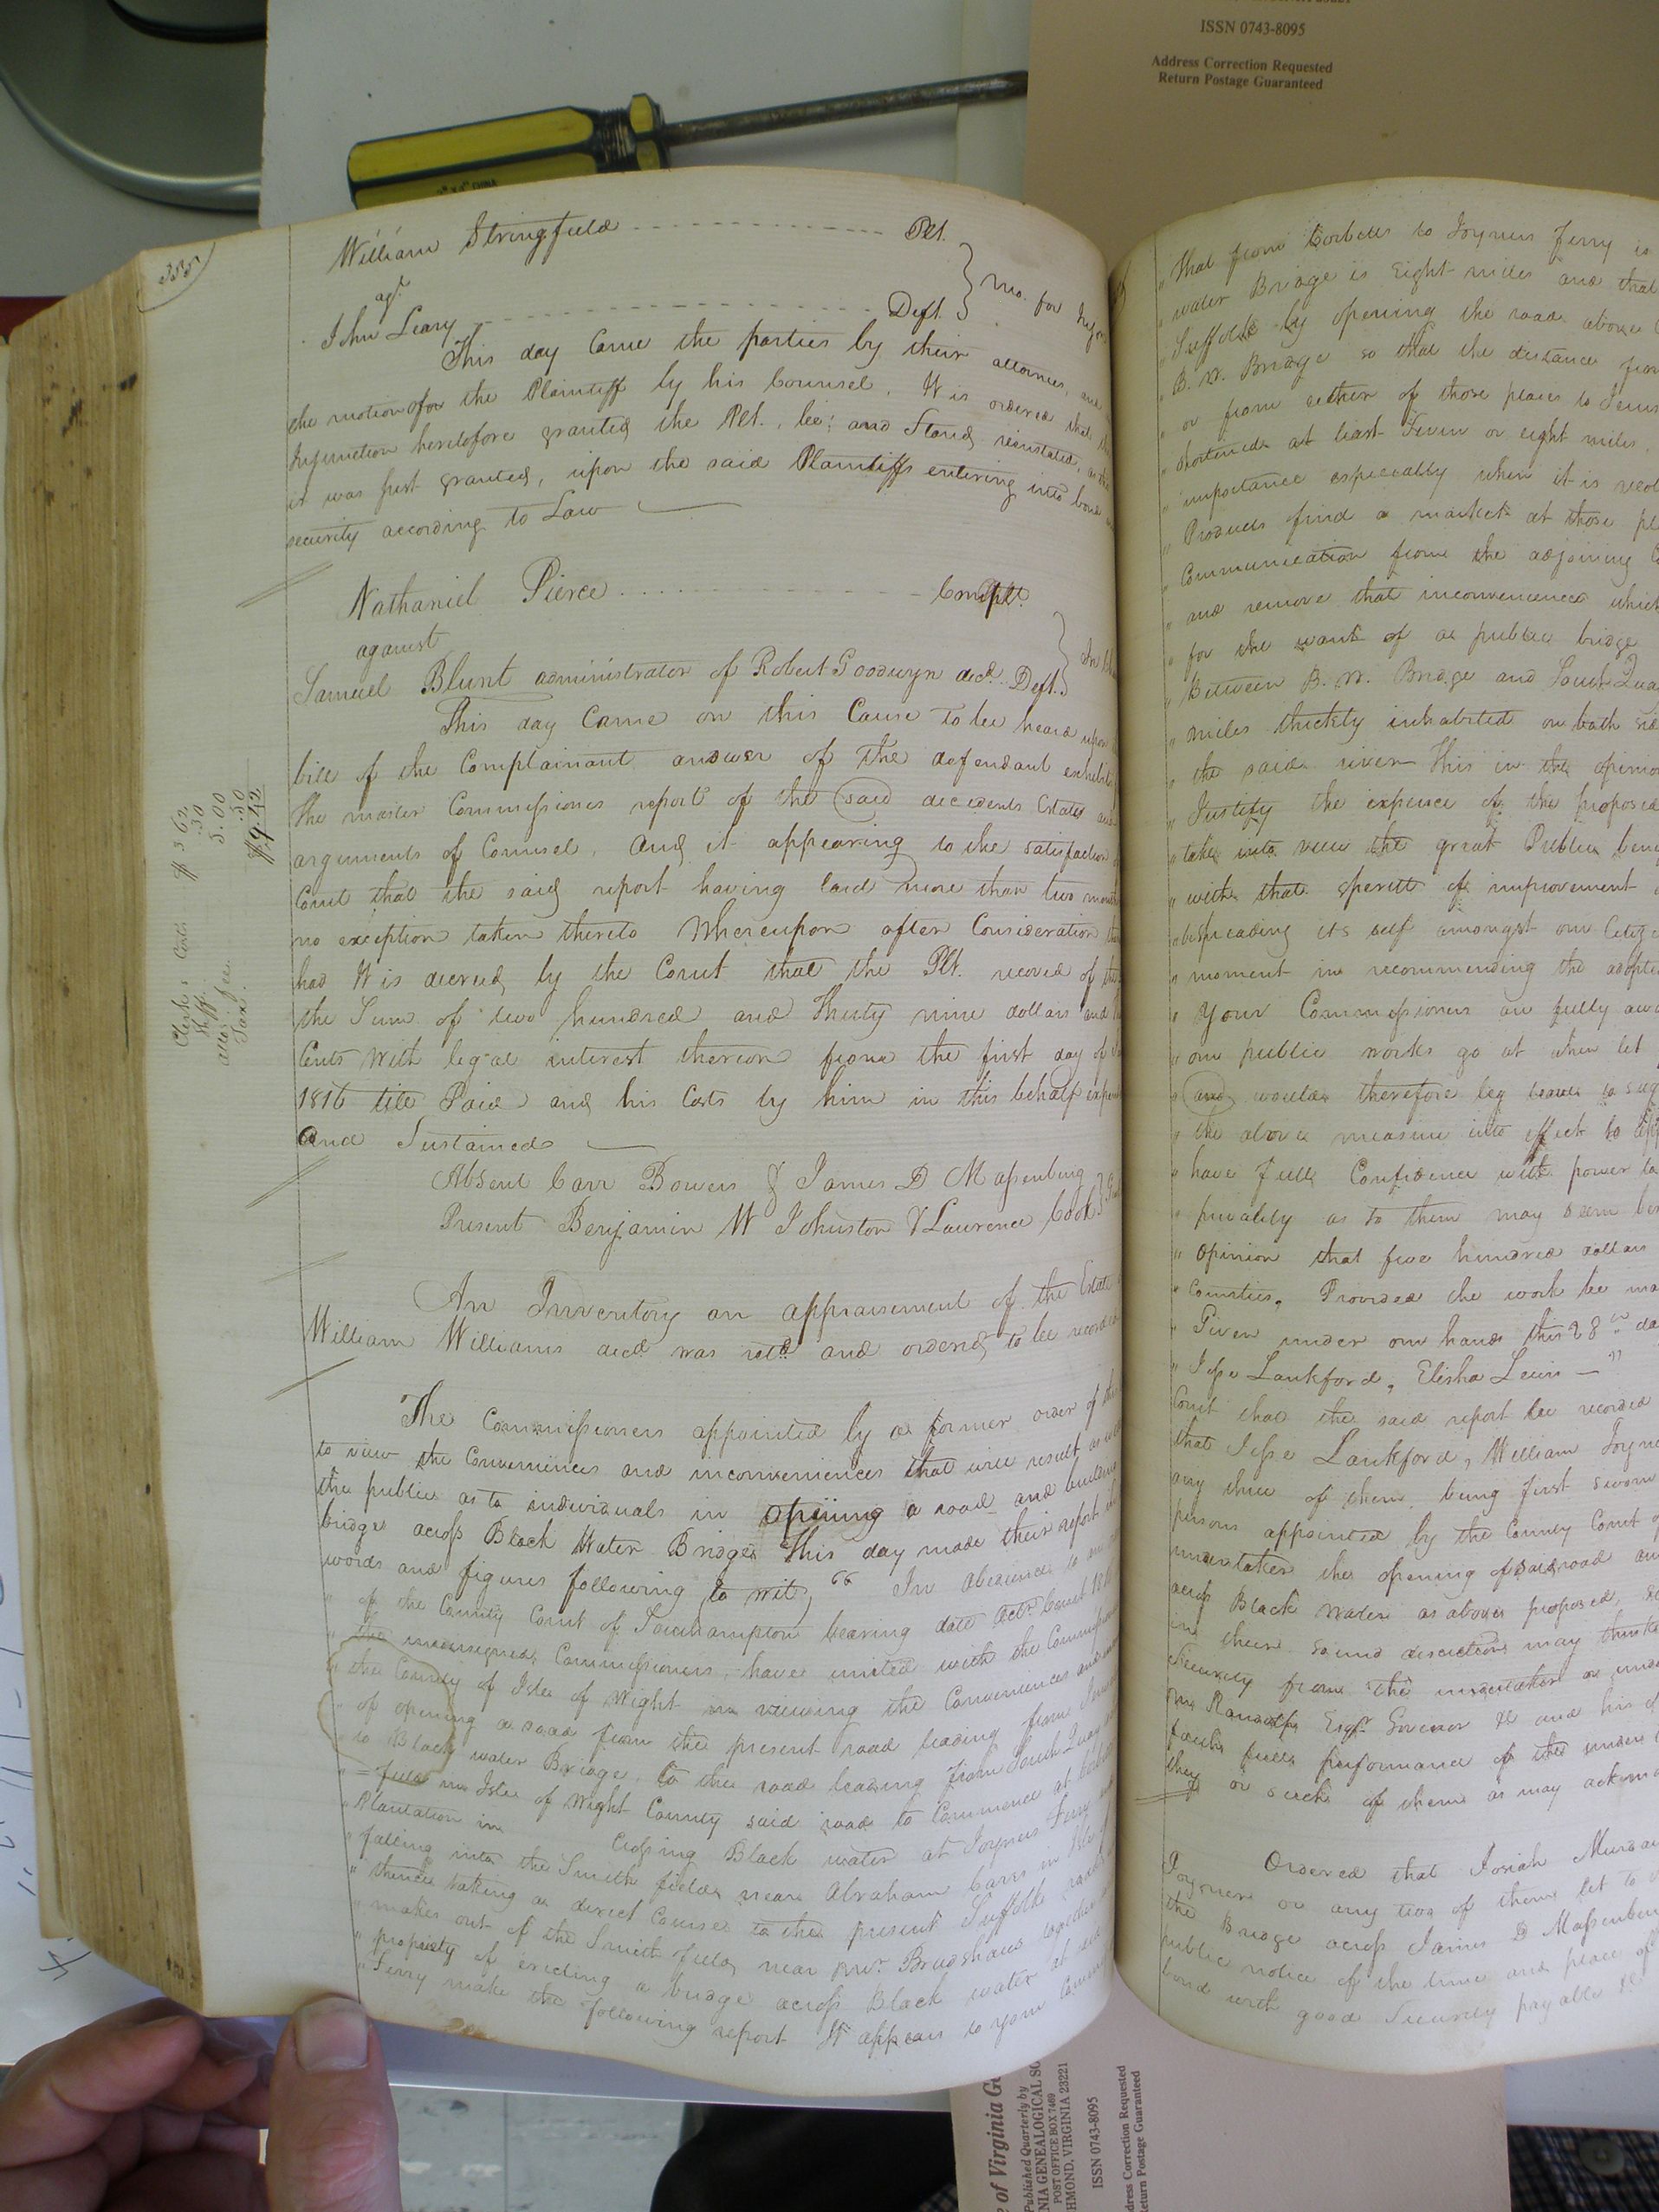 ISSN 0743-8095
Address Correction Requested
Return Postage Guaranteed
335
William Stringfield Plt.
agt.
John Leary Deft. } Mo. for Injon
This day Came the parties by their attornies, and
the motion of the Plaintiff by his Counsel, It is ordered that the
Injunction heretofore granted the Plt., be; and Stand reinstated, as
it was first granted, upon the said Plaintiffs entering into bond
security according to Law
Nathaniel Pierce Complt.
against
Samuel Blunt administrator of Robert Goodwyn decd. Deft. } In
This day Came on this Cause to be heard upon
bill of the Complainant answer of the defendant exhibits
the master Commissioners report of the said decedents Estate and
arguments of Counsel, And it appearing to the satisfaction
Court that the said report having laid more than two months
no exception taken thereto Whereupon after Consideration
had It is decreed by the Court that the Plt. recover of the
the Sum of two hundred and Thirty nine dollars and
Cents With legal interest thereon from the first day of
1816 till Paid and his Costs by him in this behalf expended
And Sustained
Clerks Costs $3.62
Shff. .30
attos. fee. 5.00
Tax. .50
$9.42
Absent Carr Bowers & James D Massenburg
Present Benjamin W Johnston & Laurence Cook
An Inventory an appraisement of the Estate
William Williams decd. was retd. and ordered to be recorded
The Commissioners appointed by a former order of this
to view the Conveniences and inconveniences that will result as well
the public as to individuals in opening a road and building
bridge across Black Water Bridge This day made their report
words and figures following to wit, “ In obedience to
" of the County Court of Southampton bearing date Octr. Court
" the undersigned Commissioners, have united with the Commissioners
" the County of Isle of Wight in viewing the Conveniences and
" of opening a road from the present road leading from
" to Black water Bridge to the road leading from South Quay
" =field in Isle of Wight County said road to Commence at
" Plantation in Crossing Black water at Joyners Ferry
" falling into the Smithfield near Abraham Carrs in Isle of
" thence taking a direct Course to the present Suffolk road
" makes out of the Smithfield near Mr. Bradshaws together
" propriety of erecting a bridge across Black water at said
" Ferry make the following report It appears to your
" that from Corbetts to Joyners Ferry is
" water Bridge is Eight miles and that
" Suffolk by opening the road above
" B. W. Bridge so that the distance from
" or from either of those places to
" shortened at least Seven or eight miles,
" importance especially when it is
" Produce find a market at those
" Communication from the adjoining
" and remove that inconvenience which
" for the want of a public bridge
" Between B. W. Bridge and South Quay
" miles thickly inhabited on both
" the said river This in the opinion
" Justify the expence of the proposed
" take into view the great Public
" with that spirit of improvement
" despreading its self amongst our
" moment in recommending the
" Your Commissioners are fully
" our public works go at when let
" and would therefore beg leave to
" the above measure into effect to
" have full Confidence with power to
" privately as to them may seem
" opinion that five hundred dollars
" Counties, Provided the work be
" Given under our hands this 28th
" Jesse Lankford, Elisha Lewis — "
Court that the said report be recorded
that Jesse Lankford, William
any three of them, being first sworn
persons appointed by the County Court
undertaker the opening of said road
across Black water as above proposed,
in their sound discretion may think
Security from the undertaker or
Randolph Esqr. Governor &c and his
faithfull performance of the
they or such of them as may
Ordered that Josiah
Joyner or any two of them let to
the Bridge across James D Massenburg
public notice of the time and place of
bond with good Security payable
of Virginia
Published Quarterly by
POST OFFICE BOX 7469
HMOND, VIRGINIA 23221
ISSN 0743-8095
Address Correction Requested
Return Postage Guaranteed